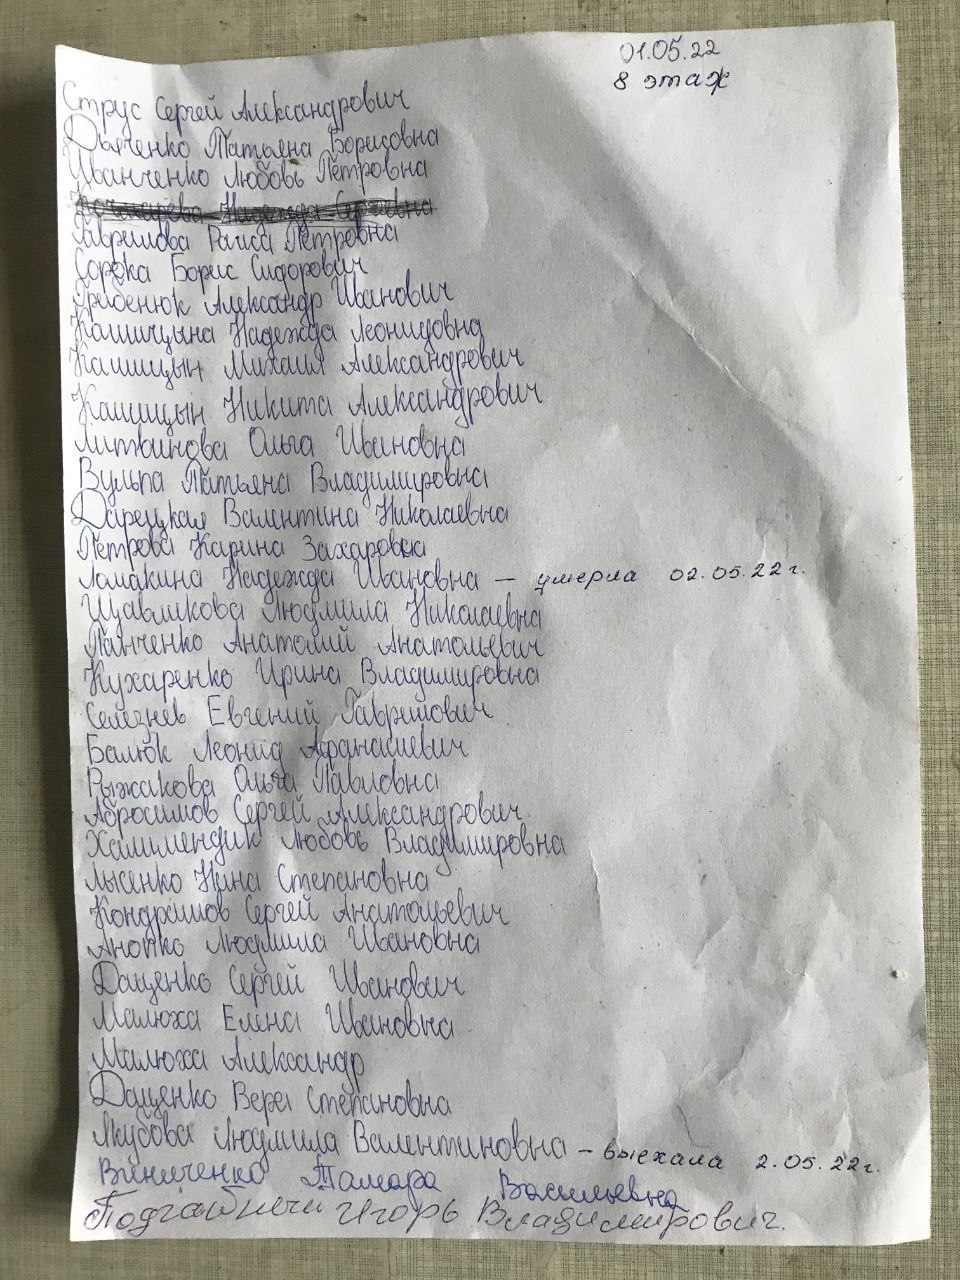 01.05.22
8 этаж
Струс Сергей Александрович
Дьяченко Татьяна Борисовна
Иванченко Любовь Петровна
Надежда Сергеевна
Гаврешова Раиса Петровна
Сорока Борис Сидорович
Гребенюк Александр Иванович
Кашицына Надежда Леонидовна
Кашицын Михаил Александрович
Кашицын Никита Александрович
Литвинова Ольга Ивановна
Вульпа Татьяна Владимировна
Дарецкая Валентина Николаевна
Петрова Карина Захаровна
Ломакина Надежда Ивановна – умерла 02.05.22г.
Щавликова Людмила Николаевна
Панченко Анатолий Анатольевич
Кухаренко Ирина Владимировна
Селезнев Евгений Гаврилович
Балюк Леонид Афанасиевич
Рыжакова Ольга Павловна
Абросимов Сергей Александрович
Халимендик Любовь Владимировна
Лысенко Нина Степановна
Кондрашов Сергей Анатольевич
Анопко Людмила Ивановна
Даценко Сергей Иванович
Малюха Елена Ивановна
Малюха Александр
Даценко Вера Степановна
Якубова Людмила Валентиновна – выехала 2.05.22г.
Винниченко Тамара Васильевна
Игорь Владимирович.